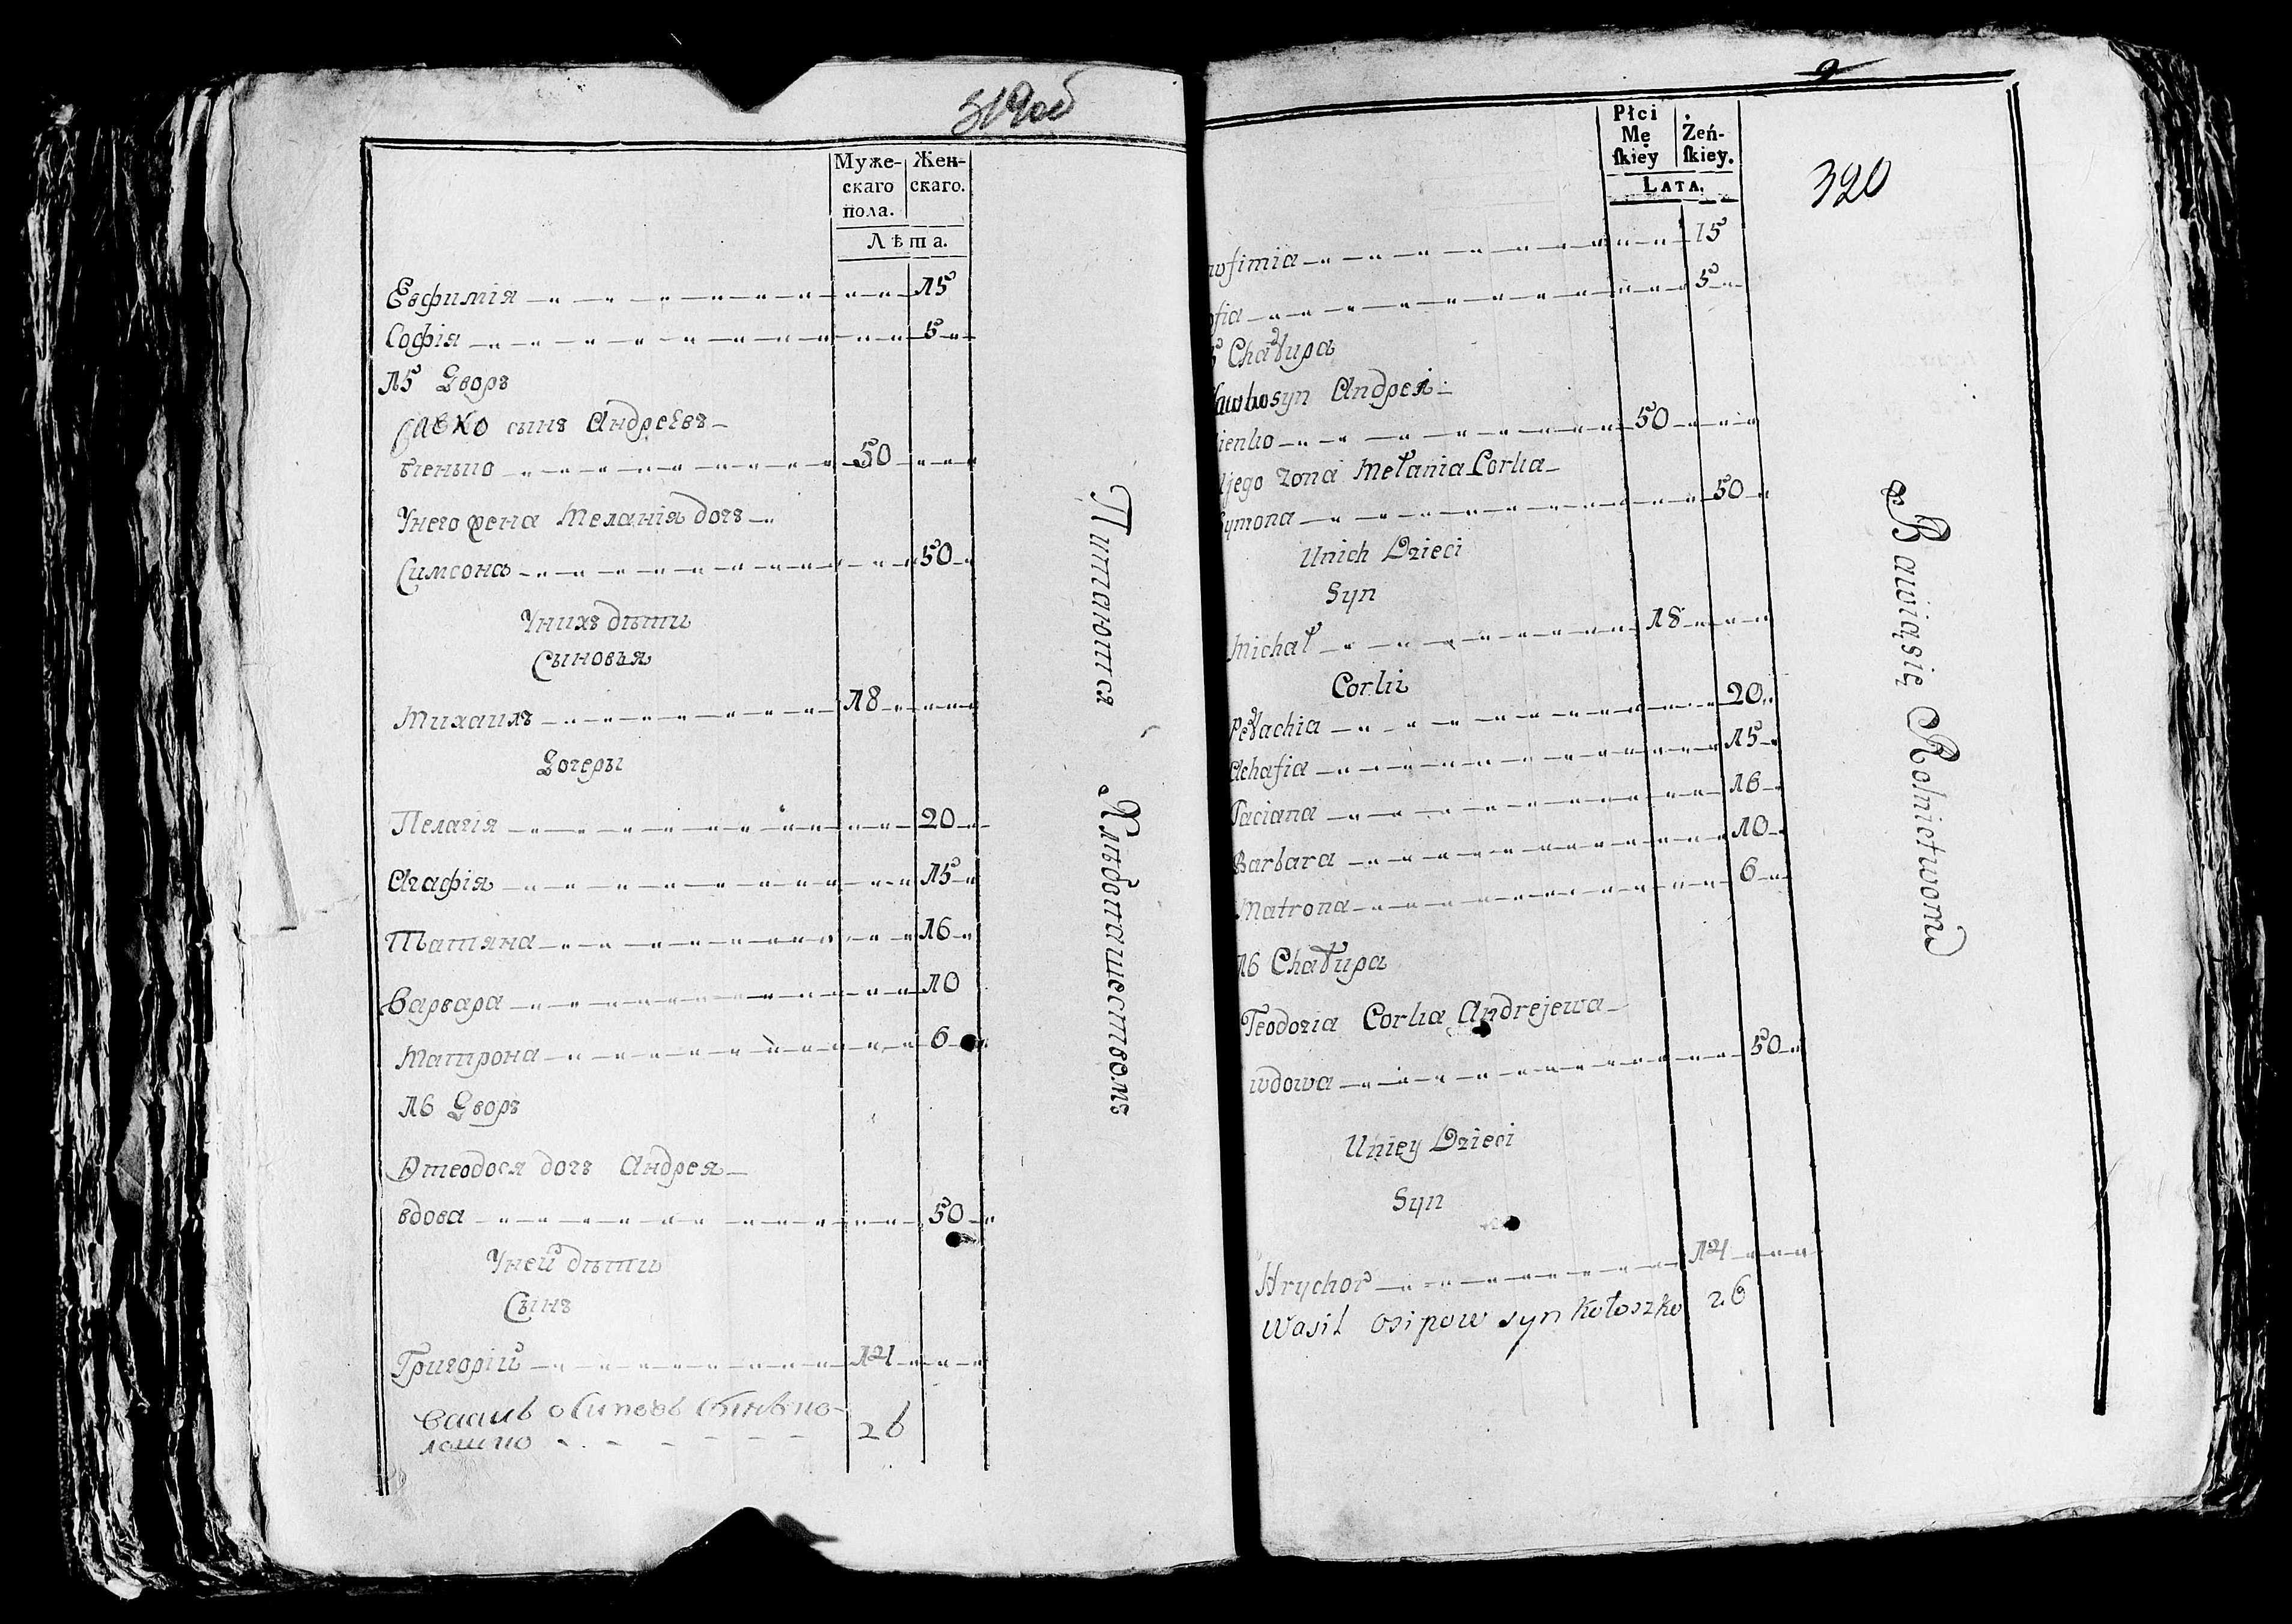 319об
Муже- Жен-
скаго скаго.
пола.
Лѣта.
Евфимія 15
Софія 5
15 Дворъ
Савко сынъ Андреевъ
50
Унего жена Меланія дочь
Симеона 50
Унихъ дѣти
Сыновья
Михаилъ 18
Дочеры
Пелагія 20
Агафія 15
Татяна 16
Варвара 10
Матрона 6
16 Дворъ
Фтеодося дочь Андрея
вдова 50
Уней дѣти
Сынъ
Григорій 14
Василь Осиповъ сынъ ко-
лошко 26
Питаются Хлѣбопашествомъ
2
320
Płci
Mę Żeń-
skiey skiey.
LATA.
wfimia 15
ofia 5
5 Chałupa
syn Andreja
ienko 50
jego zona Mełania Corka
Symona 50
Unich Dzieci
Syn
Michał 18
Corki
Pełachia 20
Ahafia 15
Taciana 16
Barbara 10
Matrona 6
16 Chałupa
Teodozia Corka Andrejewa
wdowa 50
Uniey Dzieci
Syn
Hrychor 14
Wasil Osipow syn Kołoszko 26
Bawiąsię Rolnictwom